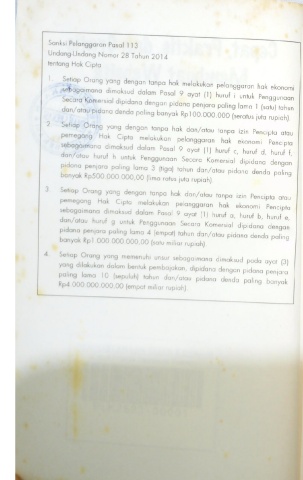 Sanksi Pelanggaran Pasal 113
Undang-Undang Nomor 28 Tahun 2014
tentang Hak Cipta
1. Setiap Orang yang dengan tanpa hak melakukan pelanggaran hak ekonomi
sebagaimana dimaksud dalam Pasal 9 ayat (1) huruf i untuk Penggunaan
Secara Komersial dipidana dengan pidana penjara paling lama 1 (satu) tahun
dan/atau pidana denda paling banyak Rp100.000.000 (seratus juta rupiah).
2. Setiap Orang yang dengan tanpa hak dan/atau tanpa izin Pencipta atau
pemegang Hak Cipta melakukan pelanggaran hak ekonomi Pencipta
sebagaimana dimaksud dalam Pasal 9 ayat (1) huruf c, huruf d, huruf f,
dan/atau huruf h untuk Penggunaan Secara Komersial dipidana dengan
pidana penjara paling lama 3 (tiga) tahun dan/atau pidana denda paling
banyak Rp500.000.000,00 (lima ratus juta rupiah).
3. Setiap Orang yang dengan tanpa hak dan/atau tanpa izin Pencipta atau
pemegang Hak Cipta melakukan pelanggaran hak ekonomi Pencipta
sebagaimana dimaksud dalam Pasal 9 ayat (1) huruf a, huruf b, huruf e,
dan/atau huruf g untuk Penggunaan Secara Komersial dipidana dengan
pidana penjara paling lama 4 (empat) tahun dan/atau pidana denda paling
banyak Rp1.000.000.000,00 (satu miliar rupiah).
4. Setiap Orang yang memenuhi unsur sebagaimana dimaksud pada ayat (3)
yang dilakukan dalam bentuk pembajakan, dipidana dengan pidana penjara
paling lama 10 (sepuluh) tahun dan/atau pidana denda paling banyak
Rp4.000.000.000,00 (empat miliar rupiah).